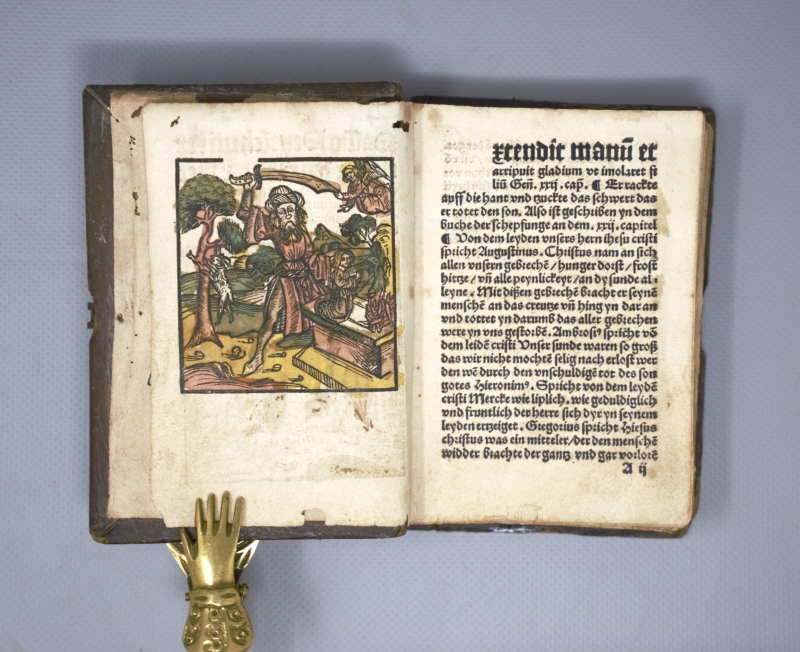 xtendit manū et
arripuit gladium vt imolaret fi
liū Gen̄. xxij. cap̄. ¶ Er rackte
auff die hant vnd zuckte das schwert das
er totet den son. Also ist geschriben yn dem
buche der schepfunge an dem. xxij. capitel
¶ Von dem leyden vnsers hern ihesu cristi
spricht Augustinus. Christus nam an sich
allen vnsern gebrechē / hunger dorst / frost
hittze / vn̄ alle peynlickeyt / an dy sunde al⸗
leyne. Mit dißen gebrechē bracht er seynē
menschē an das creutze vn̄ hing yn dar an
vnd tottet yn darumb das aller gebrechen
were yn vns gestorbē. Ambrosiꝰ spricht vō
dem leidē cristi Vnser sunde waren so groß
das wir nicht mochtē selig nach erlost wer
den wē durch den vnschuldigē tot des son
gotes Hieronimꝰ. Spricht von dem leydē
cristi Mercke wie liplich. wie geduldiglich
vnd fruntlich der herre sich dyr yn seynem
leyden ertzeiget. Gregorius spricht Hiesus
christus was ein mitteler / der den menschē
widder brachte der gantz vnd gar vorlorē
A ij